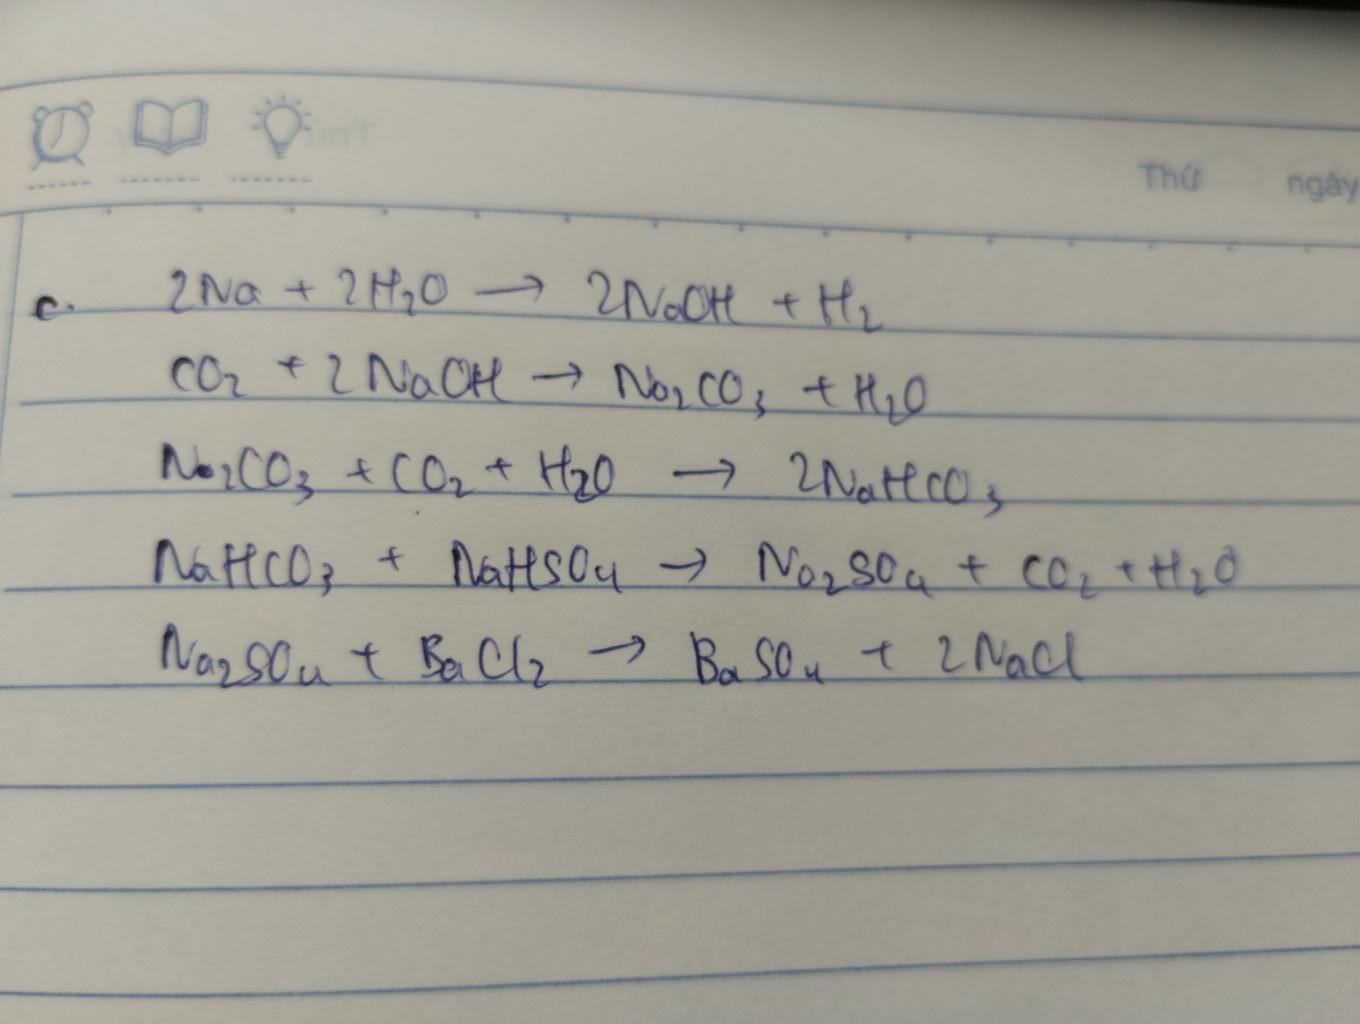 Thứ ngày
c. 2Na + 2H₂O → 2NaOH + H₂
CO₂ + 2NaOH → Na₂CO₃ + H₂O
Na₂CO₃ + CO₂ + H₂O → 2NaHCO₃
NaHCO₃ + NaHSO₄ → Na₂SO₄ + CO₂ + H₂O
Na₂SO₄ + BaCl₂ → BaSO₄ + 2NaCl